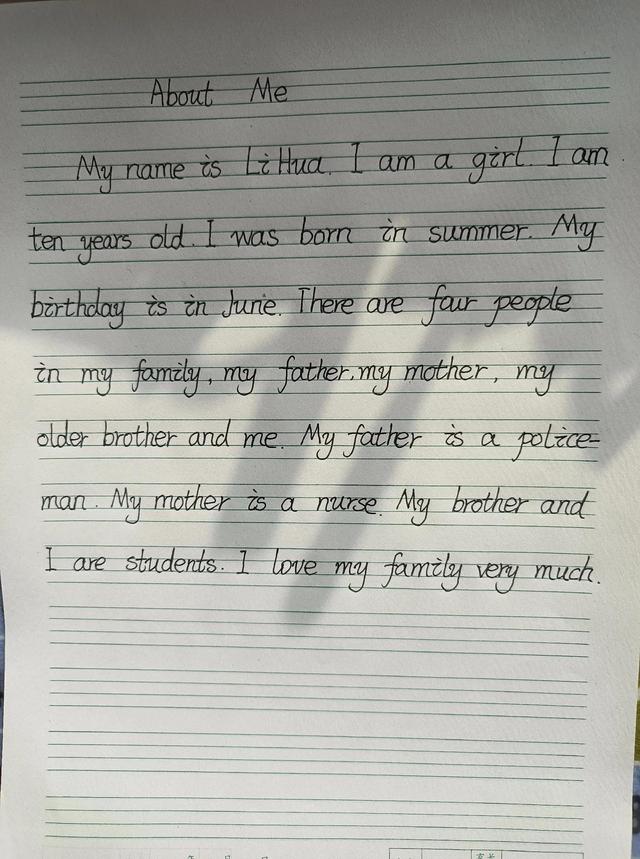 About Me
My name is Li Hua. I am a girl. I am
ten years old. I was born in summer. My
birthday is in June. There are four people
in my family, my father, my mother, my
older brother and me. My father is a police-
man. My mother is a nurse. My brother and
I are students. I love my family very much.